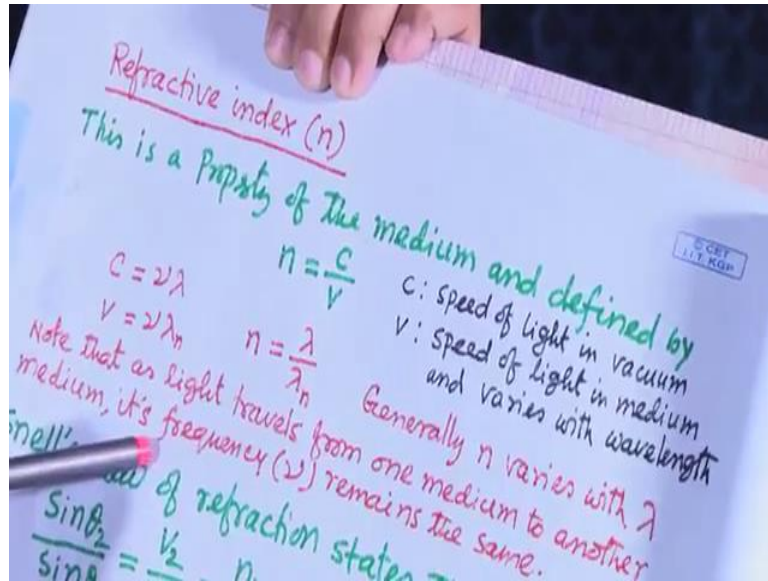 Refractive index (n)
This is a Property of the medium and defined by
n = c/v
c : speed of light in vacuum
v : speed of light in medium
and varies with wavelength
c = νλ
v = νλₙ
n = λ/λₙ
Generally n varies with λ
Note that as light travels from one medium to another
medium, it's frequency (ν) remains the same.
of refraction states
sinθ₂/sinθ = v₂/
© CET
I.I.T. KGP